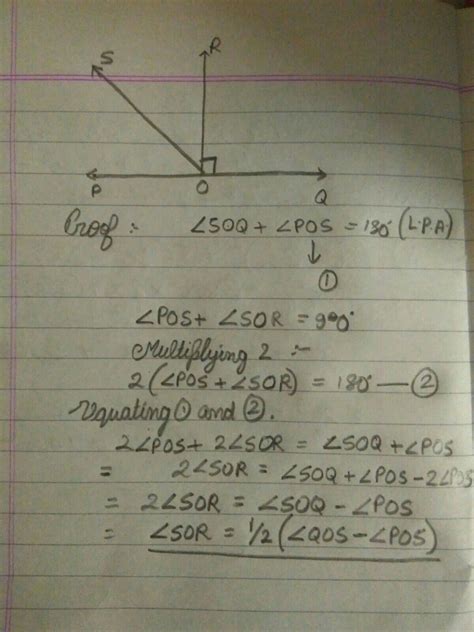 S
R
P
O
Q
Proof :- ∠SOQ + ∠POS = 180° (L.P.A)
↓
①
∠POS + ∠SOR = 90°
Multiplying 2 :-
2(∠POS + ∠SOR) = 180° — ②
Equating ① and ②.
2∠POS + 2∠SOR = ∠SOQ + ∠POS
= 2∠SOR = ∠SOQ + ∠POS - 2∠POS
= 2∠SOR = ∠SOQ - ∠POS
= ∠SOR = 1/2 (∠QOS - ∠POS)